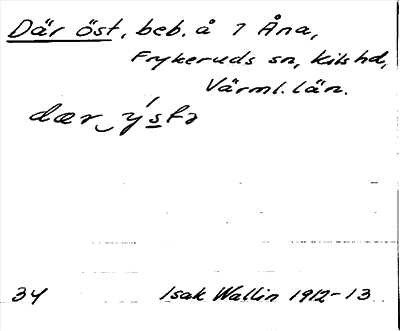 Där öst, beb. å 7 Åna,
Frykeruds sn, Kils hd,
Värml. län.
dær‿ýsta
34 Isak Wallin 1912-13